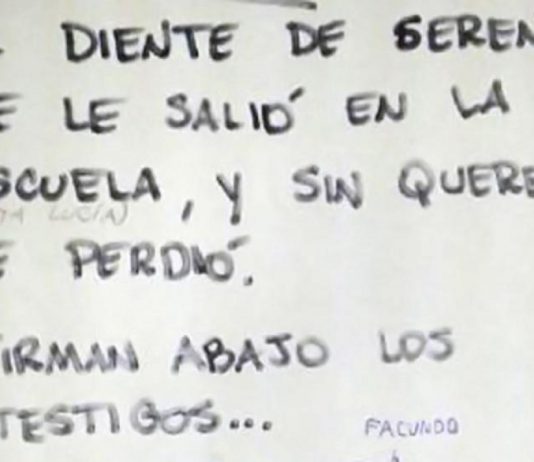 DIENTE DE SEREN
E LE SALIÓ EN LA
SCUELA, Y SIN QUERE
E PERDIÓ.
IRMAN ABAJO LOS
TESTIGOS...
FACUNDO